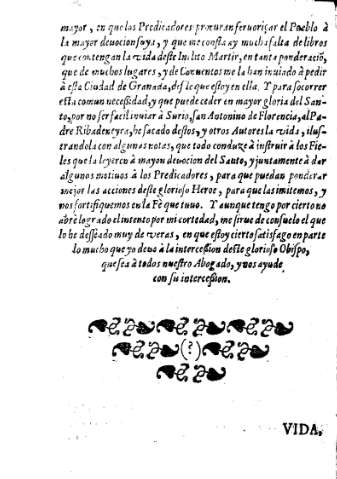 mayor, en que los Predicadores procuran feruorizar el Pueblo à
la mayor deuocion suya, y que me consta ay mucha falta de libros
que contengan la vida deste Inclito Martir, en tanta ponderaciõ,
que de muchos lugares, y de Conuentos me la han inuiado à pedir
à esta Ciudad de Granada, desde que estoy en ella. Y para socorrer
esta comun necessidad, y que puede ceder en mayor gloria del San-
to, por no ser facil inuiar à Surio, san Antonino de Florencia, al Pa-
dre Ribadeneyra, he sacado destos, y otros Autores la vida, ilus-
trandola con algunas notas, que todo conduze à instruir à los Fie-
les que la leyeren à mayor deuocion del Santo, y juntamente à dar
algunos motiuos à los Predicadores, para que puedan ponderar
mejor las acciones deste glorioso Heroe, para que las imitemos, y
nos fortifiquemos en la Fè que tuuo. Y aunque tengo por cierto no
abrè logrado el intento por mi cortedad, me sirue de consuelo el que
lo he desseado muy de veras, en que estoy cierto satisfago en parte
lo mucho que yo deuo à la intercession deste glorioso Obispo,
que sea à todos nuestro Abogado, y nos ayude
con su intercession.
(?)
VIDA,